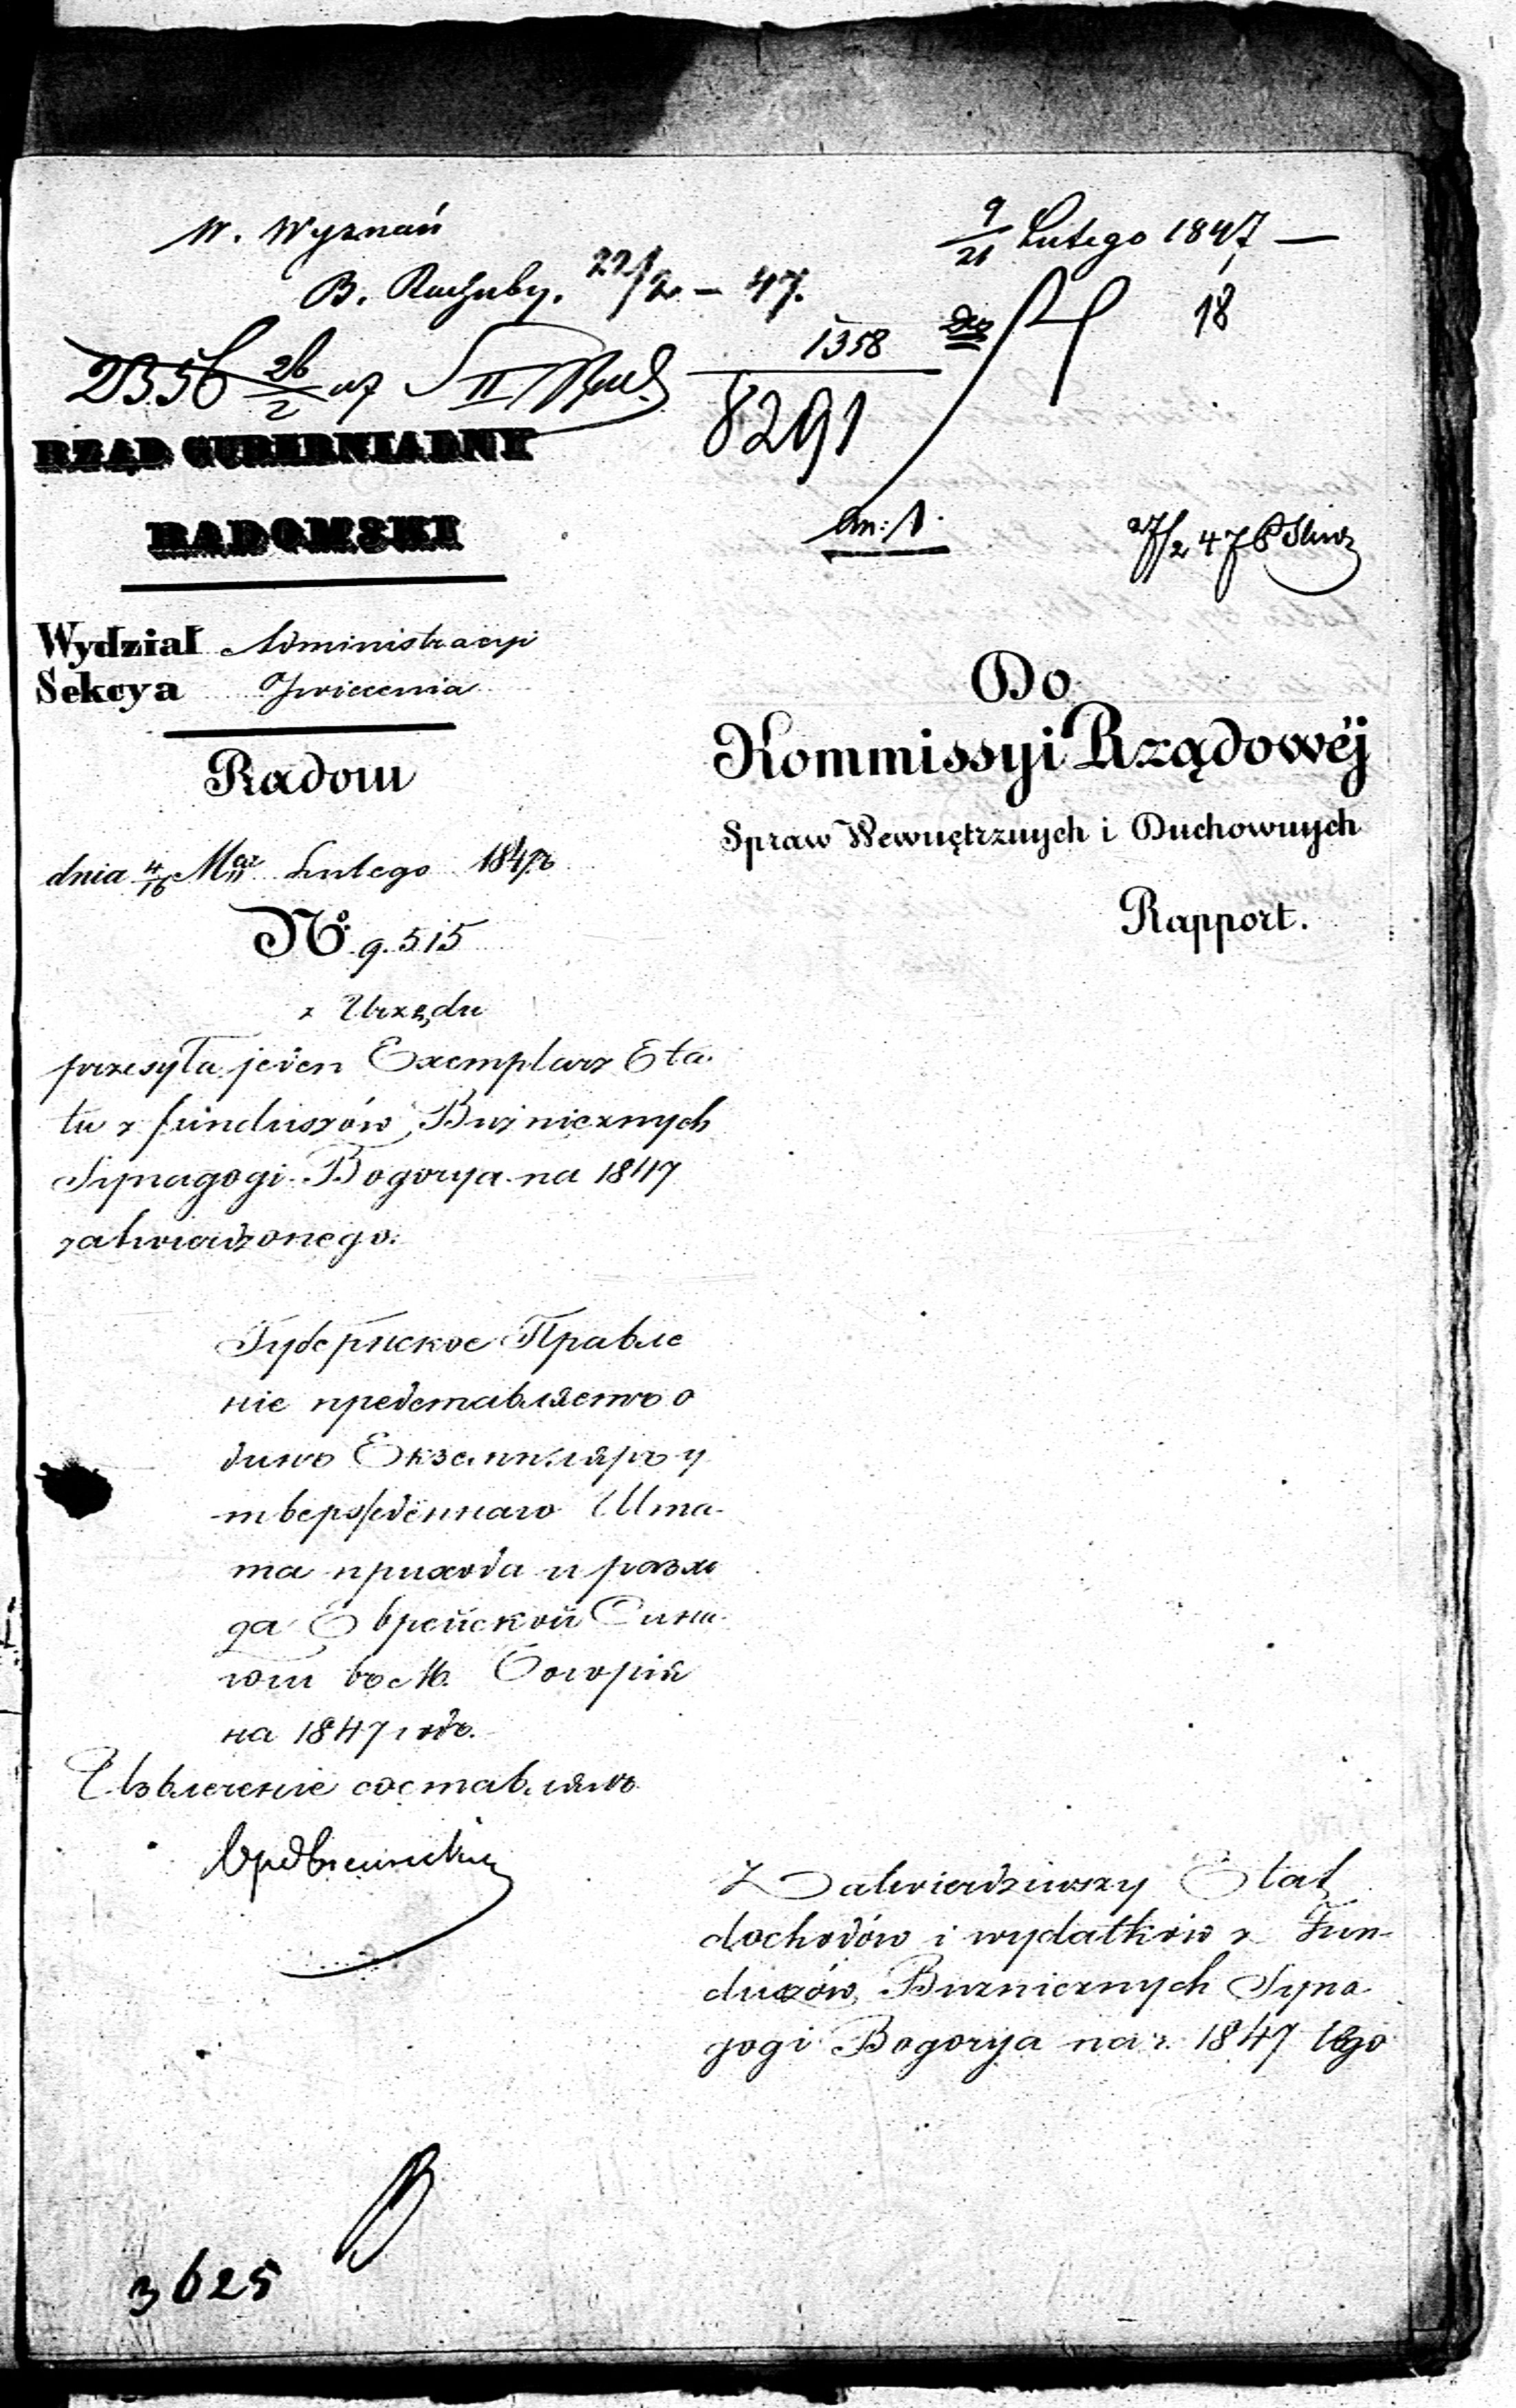 W. Wyznań
B. Rachuby. 22/2 - 47.
9/21 Lutego 1847 —
18
1358
8291
2356 26/2 47 S II
RZĄD GUBERNIALNY
RADOMSKI
an: 1.
27/2 47
Wydział Administracyi
Sekcya
Radom
dnia 4/16 Lutego 1847 r
Do
Kommissyi Rządowéj
Spraw Wewnętrznych i Duchownych
Rapport.
No. 9.515
z Urzędu
przesyła jeden Exemplarz Eta-
tu z funduszów Bużnicznych
Synagogi Bogorya na 1847
zatwierdzonego.
Губернское Правле
ніе представляетъ о
динъ Екземпляръ у
твержденнаго Шта-
та прихода и расхо
да Еврейской Сина-
гоги въ М. Богорія
на 1847 годъ.
Извлеченіе составлялъ
Zatwierdziwszy Etat
dochodów i wydatków z Fun-
duszów Bużnicznych Syna
gogi Bogorya na r. 1847 tego
3625